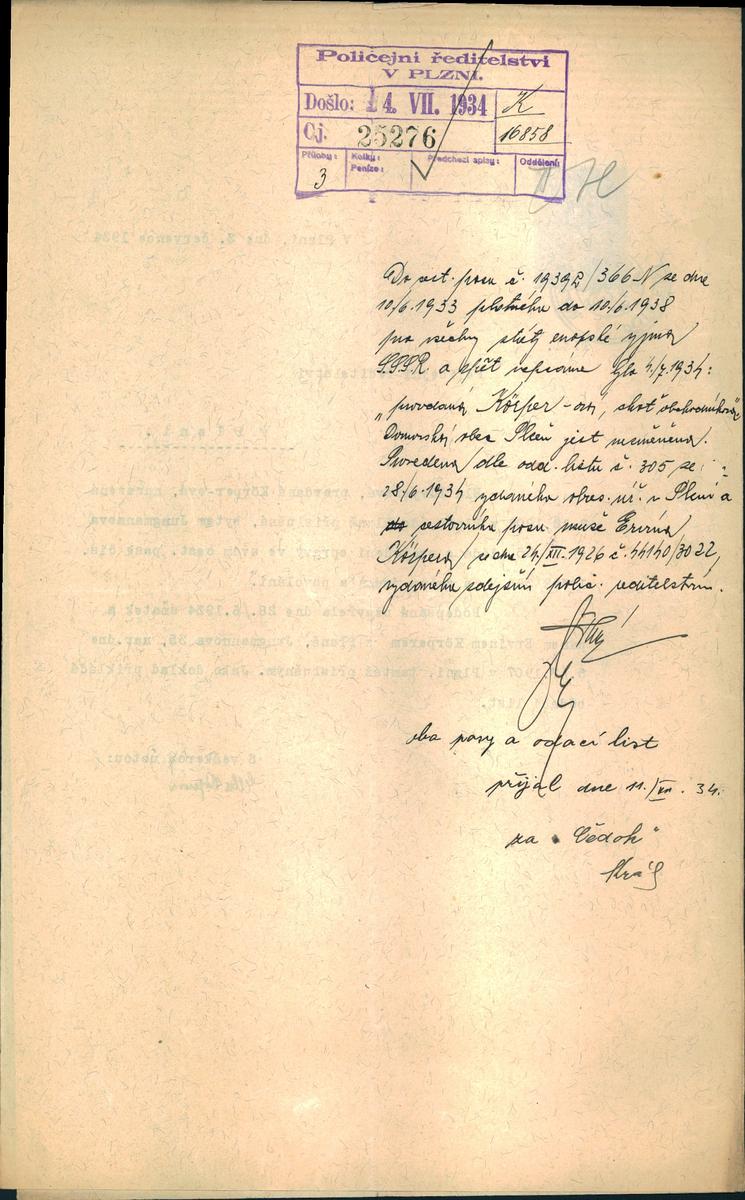 Policejní ředitelství
V PLZNI.
Došlo: 4. VII. 1934 K
Čj. 25276 16858
Přílohy: Kolky: Předchozí spisy: Oddělení:
3 Peníze:
H
Do cest. pasu č. 19392/366 N ze dne
10/6.1933 platného do 10/6.1938
pro všechny státy evropské vyjma
S.S.S.R. a zpět vepsáno bylo 4./7.1934:
„provdaná Körper-ová, choť obchodníka"
Domovská obec Plzeň jest nezměněna.
Provedeno dle odd. listu č. 305 ze
28/6.1934 vydaného okres. úř. v Plzni a
cestovního pasu muže Ervína
Körpera ze dne 24./XII.1926 č. 44140/3022,
vydaného zdejším polic. ředitelstvím.
oba pasy a odací list
přijal dne 11./VII. 34.
za „Čedok"
Král